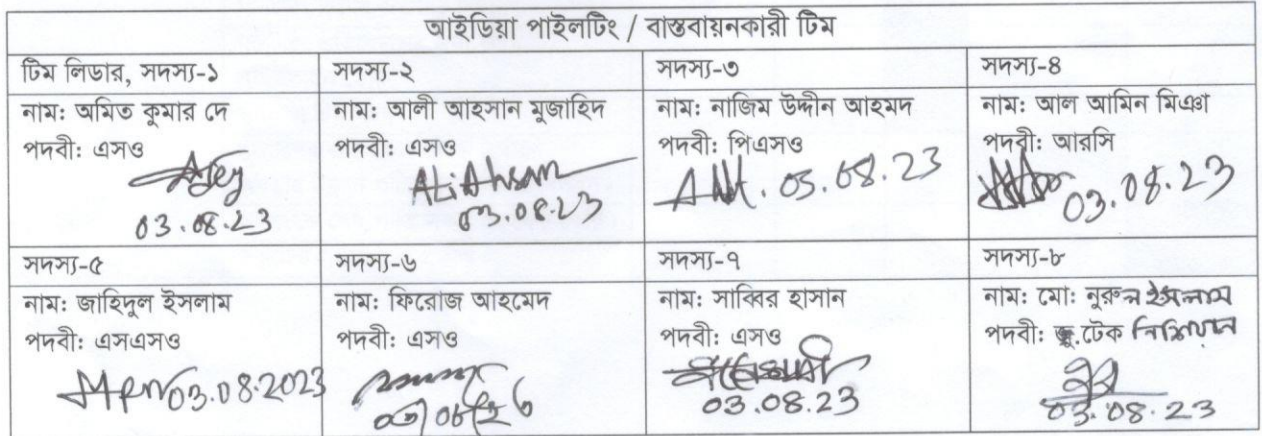 আইডিয়া পাইলটিং / বাস্তবায়নকারী টিম
টিম লিডার, সদস্য-১
সদস্য-২
সদস্য-৩
সদস্য-৪
নাম: অমিত কুমার দে
পদবী: এসও
03.08.23
নাম: আলী আহসান মুজাহিদ
পদবী: এসও
Ali Ahsan
03.08.23
নাম: নাজিম উদ্দীন আহমদ
পদবী: পিএসও
03.08.23
নাম: আল আমিন মিঞা
পদবী: আরসি
03.08.23
সদস্য-৫
সদস্য-৬
সদস্য-৭
সদস্য-৮
নাম: জাহিদুল ইসলাম
পদবী: এসএসও
03.08.2023
নাম: ফিরোজ আহমেদ
পদবী: এসও
নাম: সাব্বির হাসান
পদবী: এসও
03.08.23
নাম: মো: নুরুল ইসলাম
পদবী: টেক
03.08.23